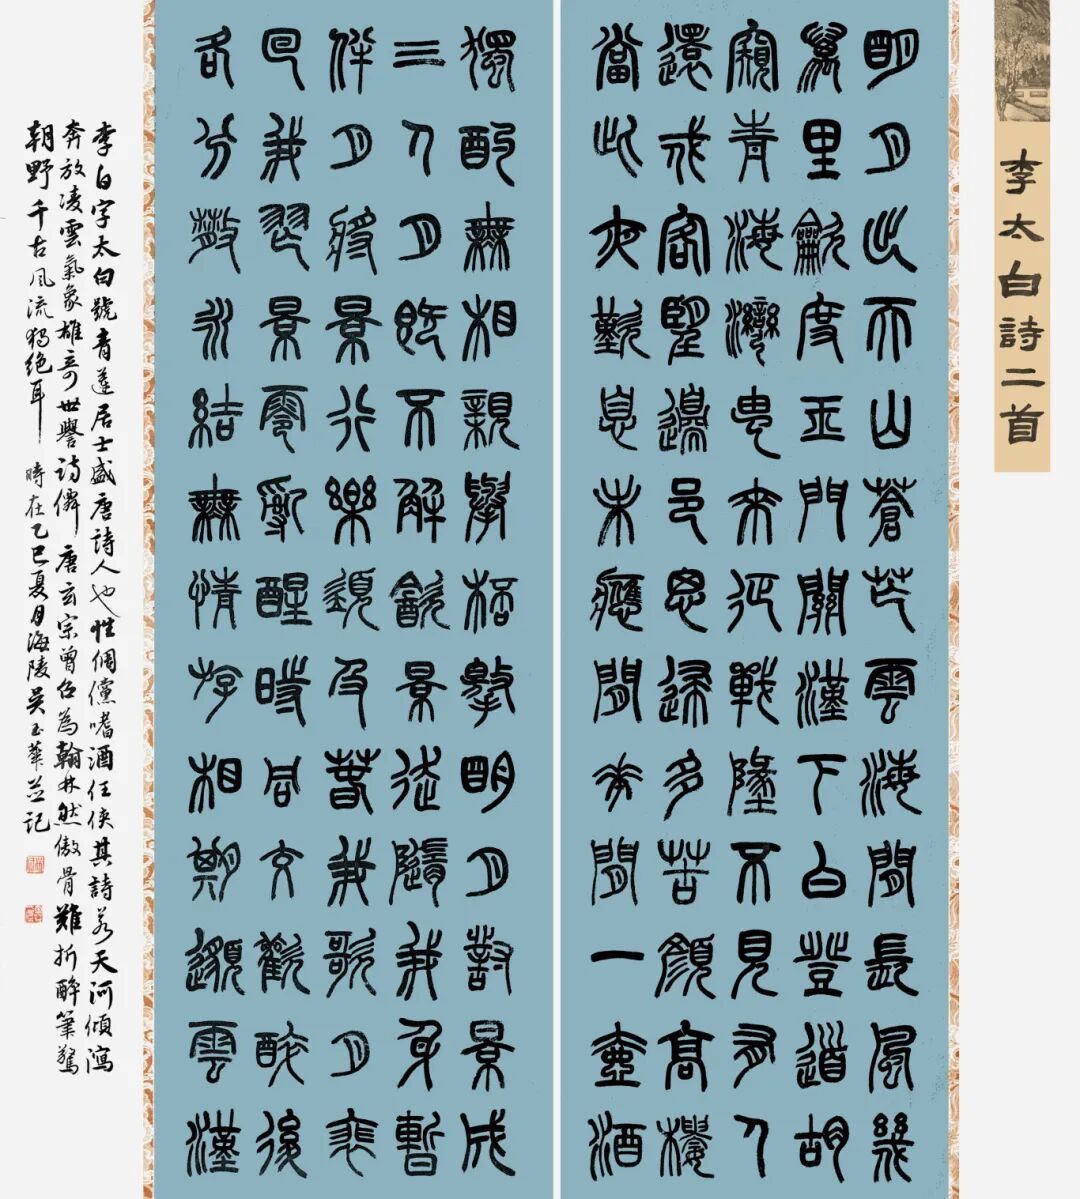 李太白詩二首
明月出天山蒼芒雲海間長風幾
萬里龡度玉門關漢下白登道胡
窺青海灣由來征戰地不見有人
還戍客望邊邑思歸多苦顏高樓
當此夜歎息未應閒花間一壺酒
獨酌無相親舉杯邀明月對景成
三人月既不解飲景徒隨我身暫
伴月將景行樂須及春我歌月裴
回我舞景零亂醒時同交歡醉後
各分散永結無情游相期邈雲漢
李白字太白號青蓮居士盛唐詩人也性倜儻嗜酒任俠其詩若天河傾瀉
奔放凌雲氣象雄奇世譽詩僊唐玄宗曾召為翰林然傲骨難折醉筆驚
朝野千古風流獨絕耳時在乙巳夏月海陵吳玉華並記